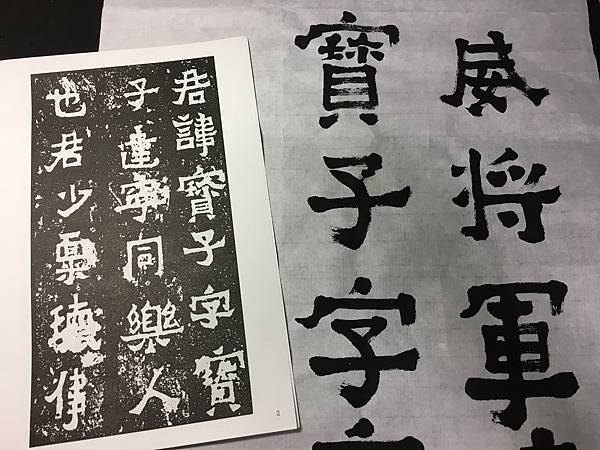 君諱寶子字寶
子建寧同樂人
也君少稟瓌偉
2
威将軍
寶子字